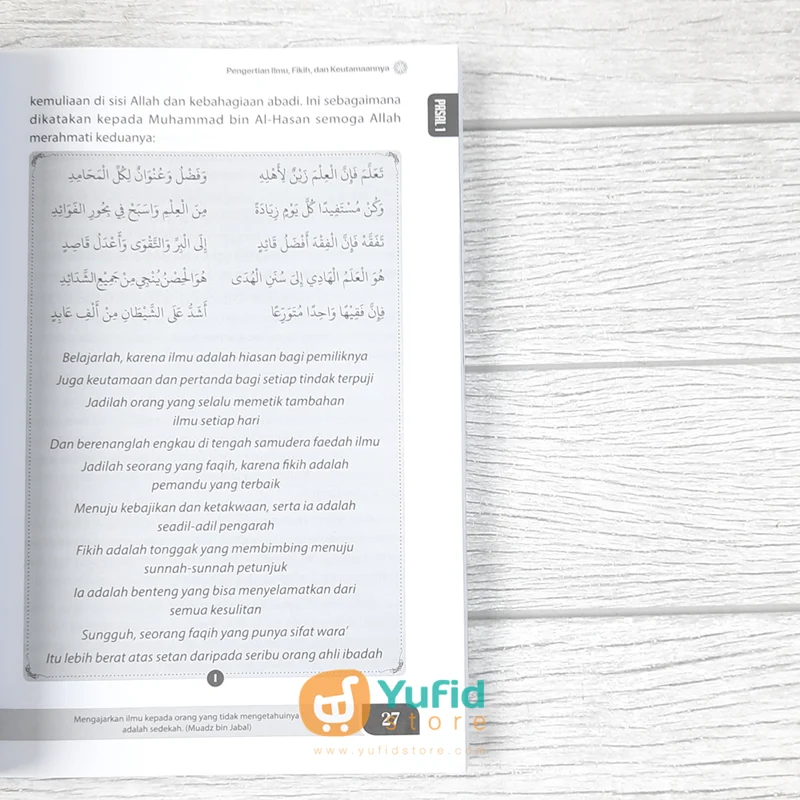 Pengertian Ilmu, Fikih, dan Keutamaannya
PASAL 1
kemuliaan di sisi Allah dan kebahagiaan abadi. Ini sebagaimana
dikatakan kepada Muhammad bin Al-Hasan semoga Allah
merahmati keduanya:
تَعَلَّمْ فَإِنَّ الْعِلْمَ زَيْنٌ لِأَهْلِهِ وَفَضْلٌ وَعُنْوَانٌ لِكُلِّ الْمَحَامِدِ
وَكُنْ مُسْتَفِيدًا كُلَّ يَوْمٍ زِيَادَةً مِنَ الْعِلْمِ وَاسْبَحْ فِي بُحُورِ الفَوَائِدِ
تَفَقَّهْ فَإِنَّ الْفِقْهَ أَفْضَلُ قَائِدٍ إِلَى الْبِرِّ وَالتَّقْوَى وَأَعْدَلُ قَاصِدٍ
هُوَ الْعَلَمُ الْهَادِي إِلَى سُنَنِ الْهُدَى هُوَ الْحِصْنُ يُنْجِي مِنْ جَمِيْعِ الشَّدَائِدِ
فَإِنَّ فَقِيْهًا وَاحِدًا مُتَوَرِّعًا أَشَدُّ عَلَى الشَّيْطَانِ مِنْ أَلْفِ عَابِدٍ
Belajarlah, karena ilmu adalah hiasan bagi pemiliknya
Juga keutamaan dan pertanda bagi setiap tindak terpuji
Jadilah orang yang selalu memetik tambahan
ilmu setiap hari
Dan berenanglah engkau di tengah samudera faedah ilmu
Jadilah seorang yang faqih, karena fikih adalah
pemandu yang terbaik
Menuju kebajikan dan ketakwaan, serta ia adalah
seadil-adil pengarah
Fikih adalah tonggak yang membimbing menuju
sunnah-sunnah petunjuk
Ia adalah benteng yang bisa menyelamatkan dari
semua kesulitan
Sungguh, seorang faqih yang punya sifat wara'
Itu lebih berat atas setan daripada seribu orang ahli ibadah
1
Mengajarkan ilmu kepada orang yang tidak mengetahuinya
adalah sedekah. (Muadz bin Jabal)
27
Yufid
store
www.yufidstore.com